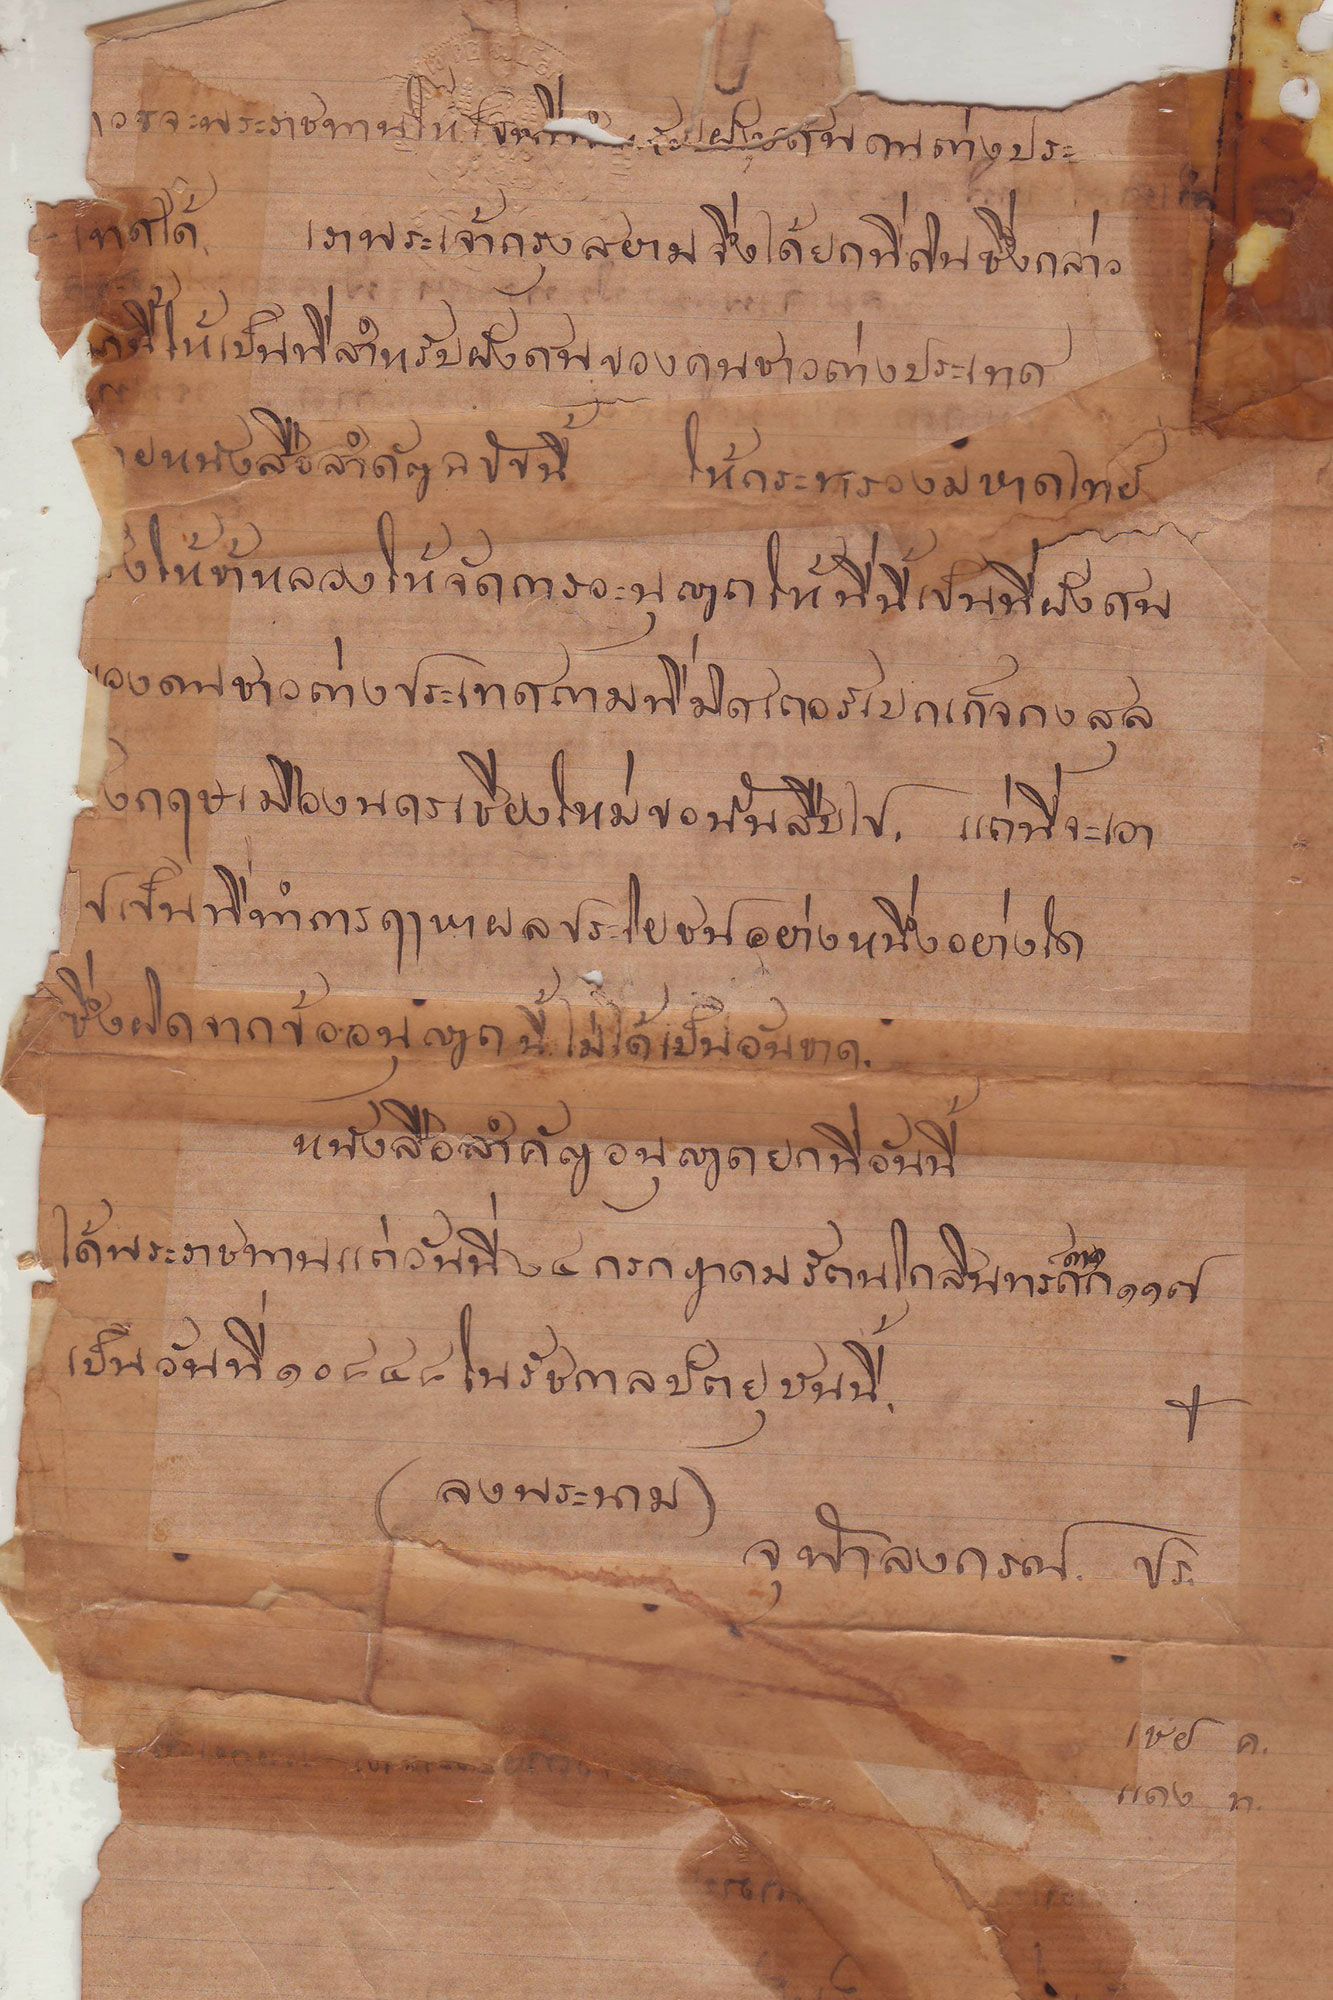 ควรจะพระราชทานให้เปนที่สำหรับฝังศพคนต่างประ
เทศได้ เราพระเจ้ากรุงสยามจึ่งได้ยกที่ดินซึ่งกล่าว
มานี้ให้เป็นที่สำหรับฝังศพของคนชาวต่างประเทศ
หนังสือสำคัญฉบับนี้ ให้กระทรวงมหาดไทย
ให้ข้าหลวงให้จัดการอะนุญาตให้ที่นี้เป็นที่ฝังศพ
ของคนชาวต่างประเทศตามที่มิศเตอร์เบกเก็จกงสุล
อังกฤษเมืองนครเชียงใหม่ขอนั้นสืบไป. แต่ที่จะเอา
ไปเป็นที่ทำการฤาหาผลประโยชน์อย่างหนึ่งอย่างใด
ซึ่งผิดจากข้ออนุญาตนี้ ไม่ได้เป็นอันขาด.
หนังสือสำคัญอนุญาตยกที่อันนี้
ได้พระราชทานแต่วันที่ ๒๔ กรกฎาคม รัตนโกสินทรศก ๑๑๗
เป็นวันที่ ๑๐๘๔๘ ในรัชกาลปัตยุบันนี้.
(ลงพระนาม)
จุฬาลงกรณ์. ปร.
เชย ค.
แดง ท.